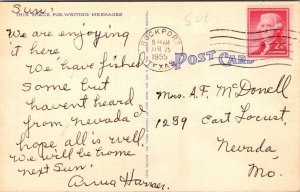 THIS SPACE FOR WRITING MESSAGES
Sun.
We are enjoying
it here
We have fished
some but
havent heard
from nevada
hope all is well.
We will be home
next Sun.
Anna
ROCKPORT
APR 25
1955
TEXAS
POST CARD
2¢
Mrs. A. F. McDonell
1239 East Locust,
Nevada,
Mo.